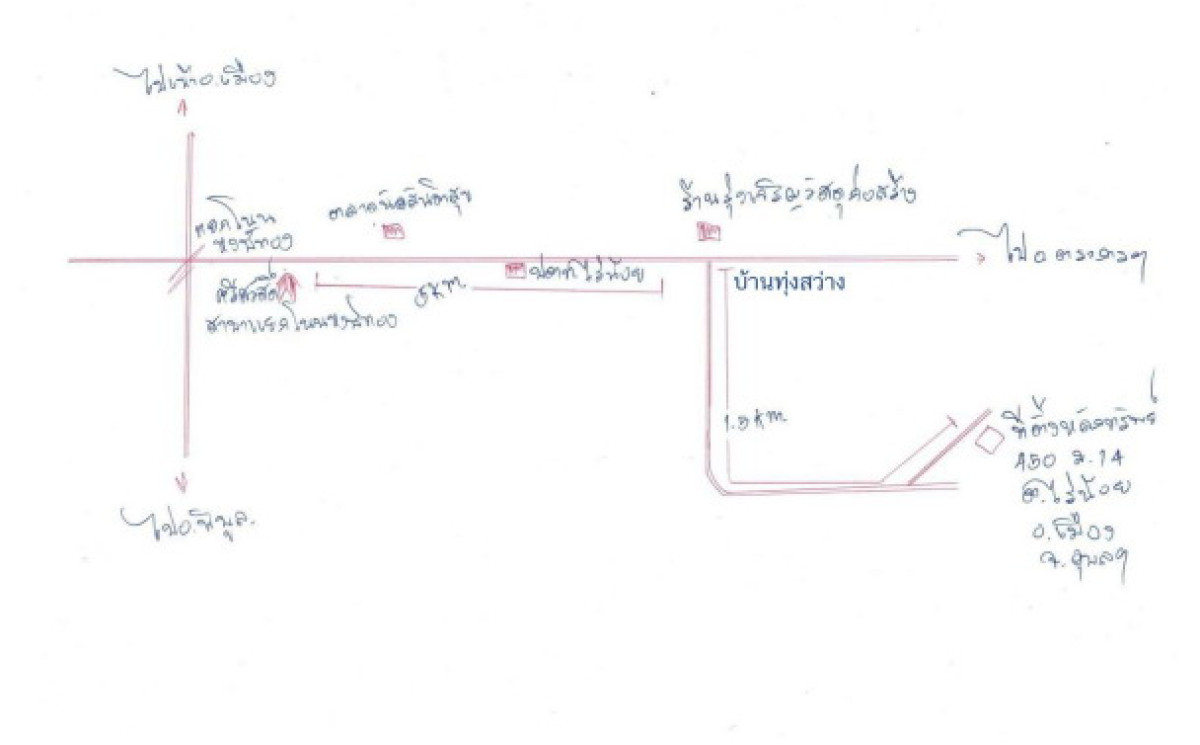 ไปเข้าอ.เมือง
แยกโนน
หงษ์ทอง
ตลาดนัดสันติสุข
ร้านรุ่งเจริญวัสดุก่อสร้าง
ไปอ.
ศรีสวัสดิ์
สาขาแยกโนนหงษ์ทอง
5 km
ไร่น้อย
บ้านทุ่งสว่าง
1.5 km
ที่ตั้งหลักทรัพย์
450 ม.14
ต.ไร่น้อย
อ.เมือง
จ.อุบลฯ
ไปอ.พิบูล.